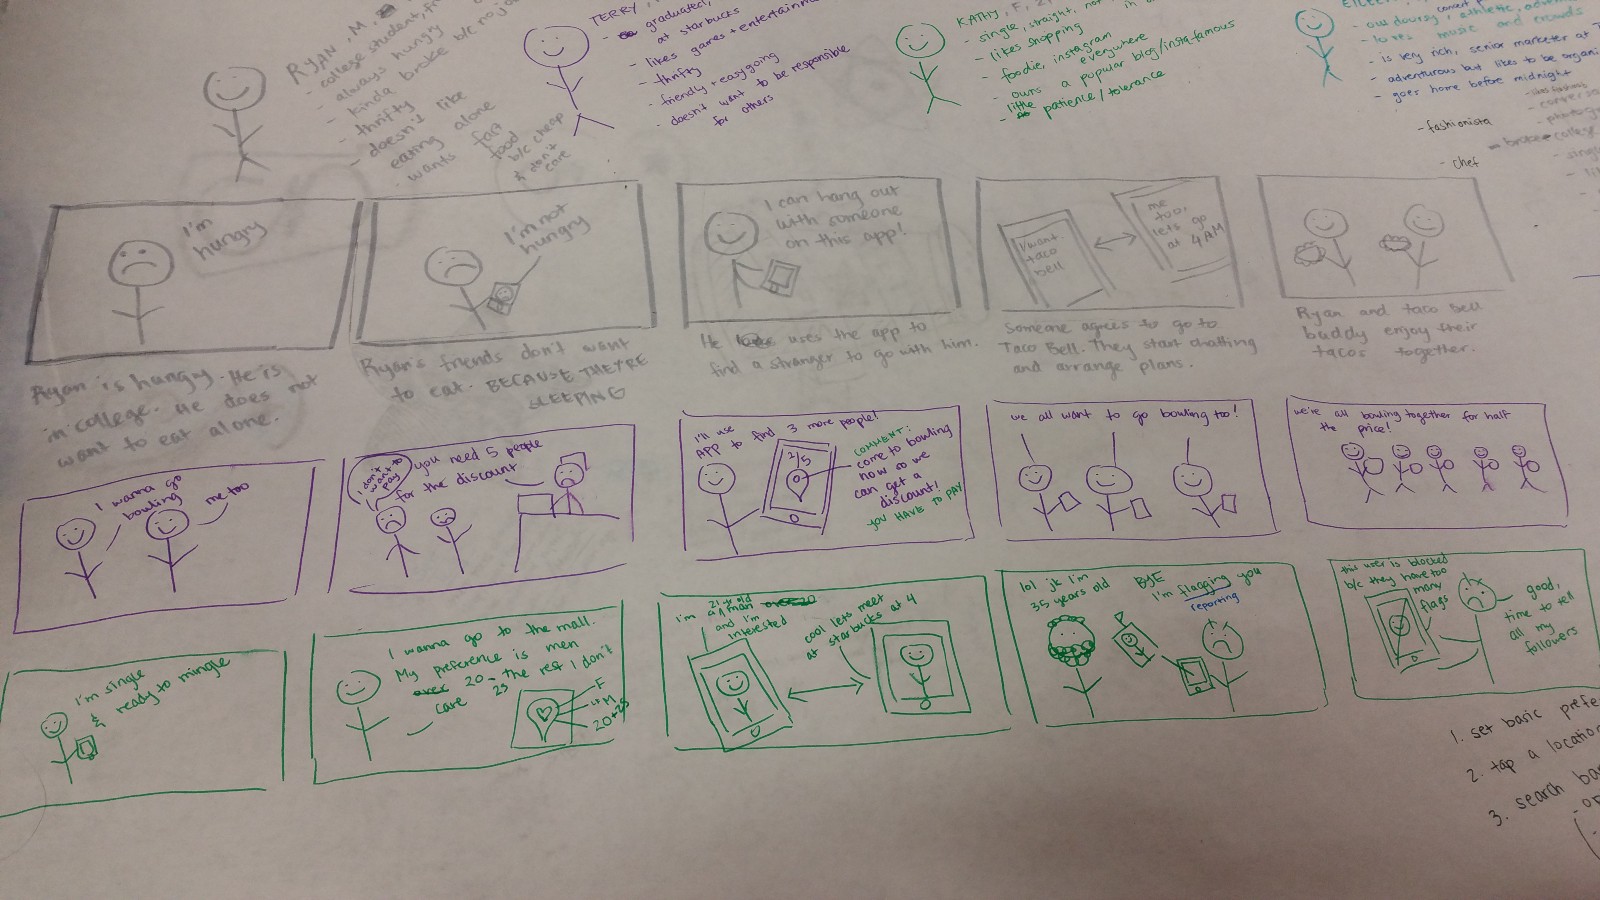 RYAN, M,
- college student,
always hungry
- kinda broke b/c no jo
- thrifty
- doesn't like
eating alone
- wants fast
food
b/c cheap
& don't
care
TERRY,
- graduated,
at starbucks
- likes games + entertainm
- thrifty
- friendly + easygoing
- doesn't want to be responsible
for others
KATHY, F,
- single, straight, not in a
- likes shopping
- foodie, instagram
everywhere
- owns a popular blog/insta-famous
- little patience/tolerance
- outdoorsy, athletic,
- loves music and crowds
- is very rich, senior marketer at
- adventurous but likes to be organi
- goes home before midnight
- fashionista
- chef
I'm
hungry
Ryan is hungry. He is
in college. He does not
want to eat alone.
I'm not
hungry
Ryan's friends don't want
to eat. BECAUSE THEY'RE
SLEEPING
I can hang out
with someone
on this app!
He uses the app to
find a stranger to go with him.
I want
taco
bell
me
too,
lets go
at 4AM
Someone agrees to go to
Taco Bell. They start chatting
and arrange plans.
Ryan and taco bell
buddy enjoy their
tacos together.
I wanna go
bowling
me too
I don't
want to
pay
you need 5 people
for the discount
I'll use
APP to find 3 more people!
2/5
COMMENT:
come to bowling
now so we
can get a
discount!
YOU HAVE TO PAY
we all want to go bowling too!
we're all bowling together for half
the price!
I'm single
&
ready to mingle
I wanna go to the mall.
My preference is men
over 20-25 the rest I don't
care
F
M
20-25
I'm a 21 yr old man over 20
and I'm
interested
cool lets meet
at starbucks at 4
lol jk I'm
35 years old
BYE
I'm flagging you
reporting
this user is blocked
b/c they have too
many
flags
good,
time to tell
all my
followers
1. set basic prefe
2. tap a locatio
3. search ba